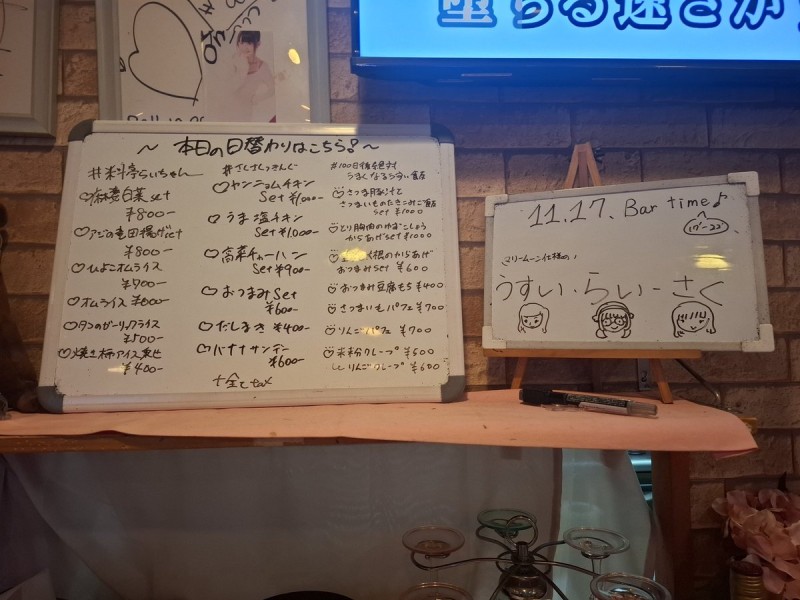 堕ちる速さが
~ 本日の日替わりはこちら!~
#料亭らいちゃん
♡麻婆白菜set
¥800-
♡アジの竜田揚げset
¥800-
♡ひよこオムライス
¥900-
♡オムライス ¥800-
♡タンのガーリックライス
¥500-
♡焼き柿アイス乗せ
¥400-
#さくさくっきんぐ
♡ヤンニョムチキン
Set ¥1,000-
♡うま塩チキン
Set ¥1,000-
♡高菜チャーハン
Set ¥900-
♡おつまみSet
¥600-
♡だしまき ¥400-
♡バナナサンデー
¥600-
+全てtax
#100日後絶対
うまくなるうすい食店
♡さつま豚汁と
さつまいものたきこみご飯
set ¥1000
♡とり胸肉のゆずこしょう
からあげset ¥1000
根のからあげ
おつまみset ¥600
♡おつまみ豆腐もち ¥400
♡さつまいもパフェ ¥700
♡りんごパフェ ¥700
♡米粉クレープ ¥500
りんごクレープ ¥600
11.17. Bar time♪
(17-22)
クリームーン仕様の
うすい・らいーさく